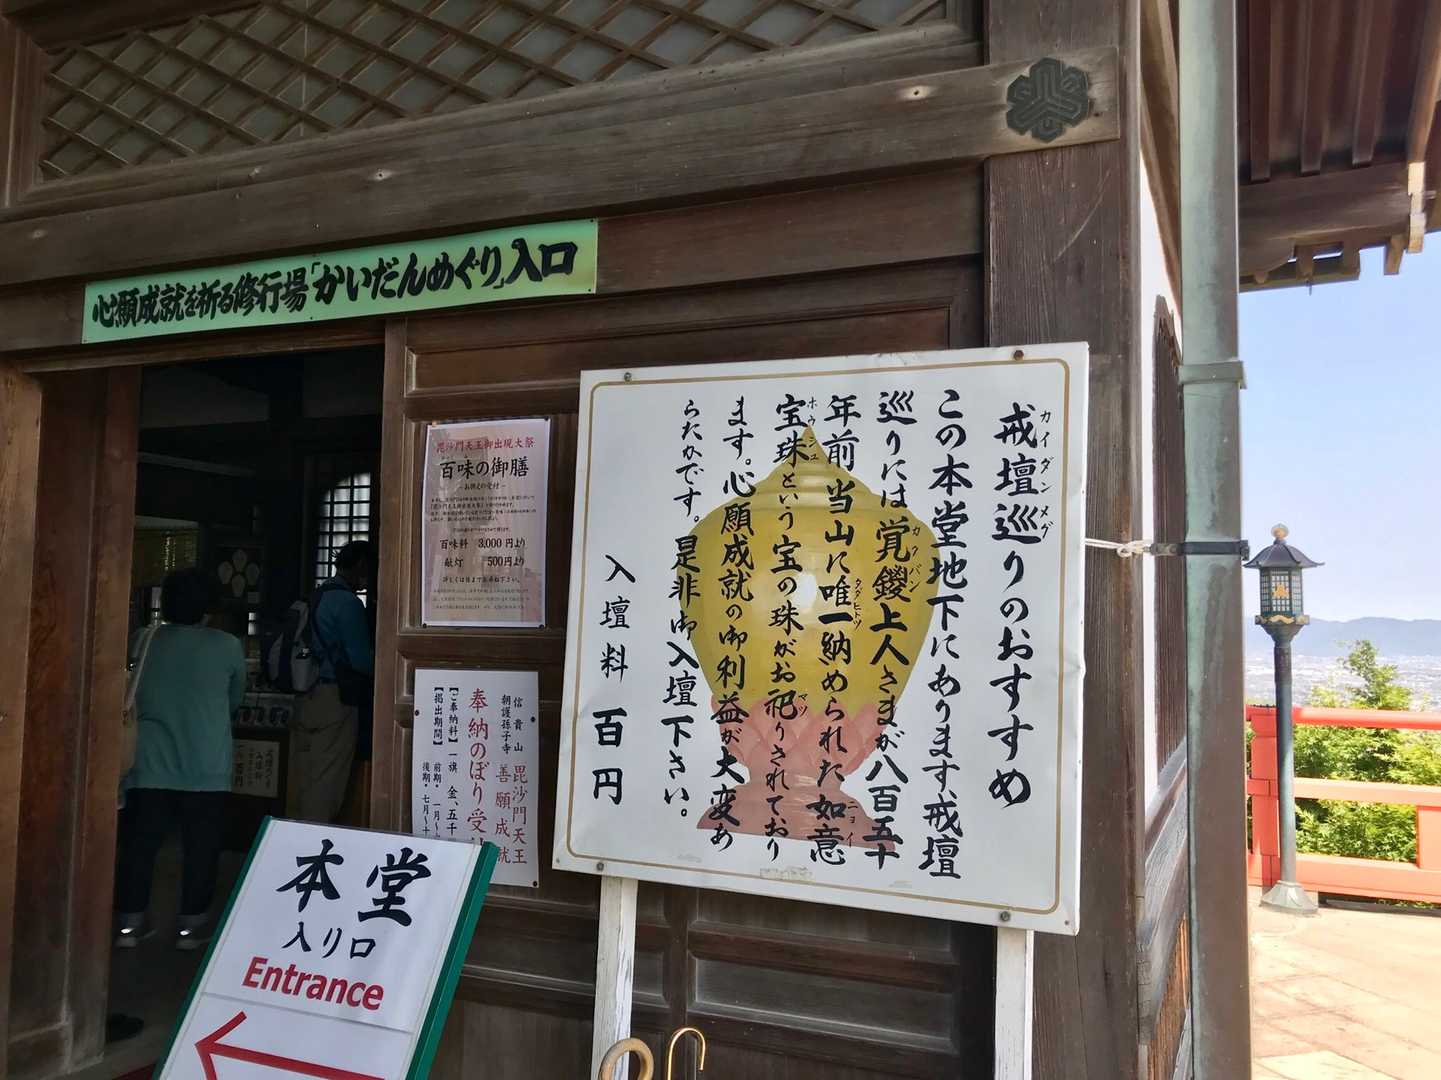 心願成就を祈る修行場「かいだんめぐり」入口
戒壇巡りのおすすめ
カイダンメグ
この本堂地下にあります、戒壇
巡りには覚鑁上人さまが八百五十
カクバン
年前当山に唯一納められた如意
タダヒトツ
ニョイ
宝珠という宝の珠がお祀りされており
ホウジュ
マツ
ます。心願成就の御利益が大変あ
らたかです。是非御入壇下さい。
入壇料 百円
毘沙門天王御出現大祭
百味の御膳
－お供えの受付－
百味料 3,000円より
献灯 500円より
信貴山
朝護孫子寺
毘沙門天王
善願成就
奉納のぼり受
【ご奉納料】一旗 金、五千
【掲出期間】前期・一月～
後期・七月～十
本堂
入り口
Entrance